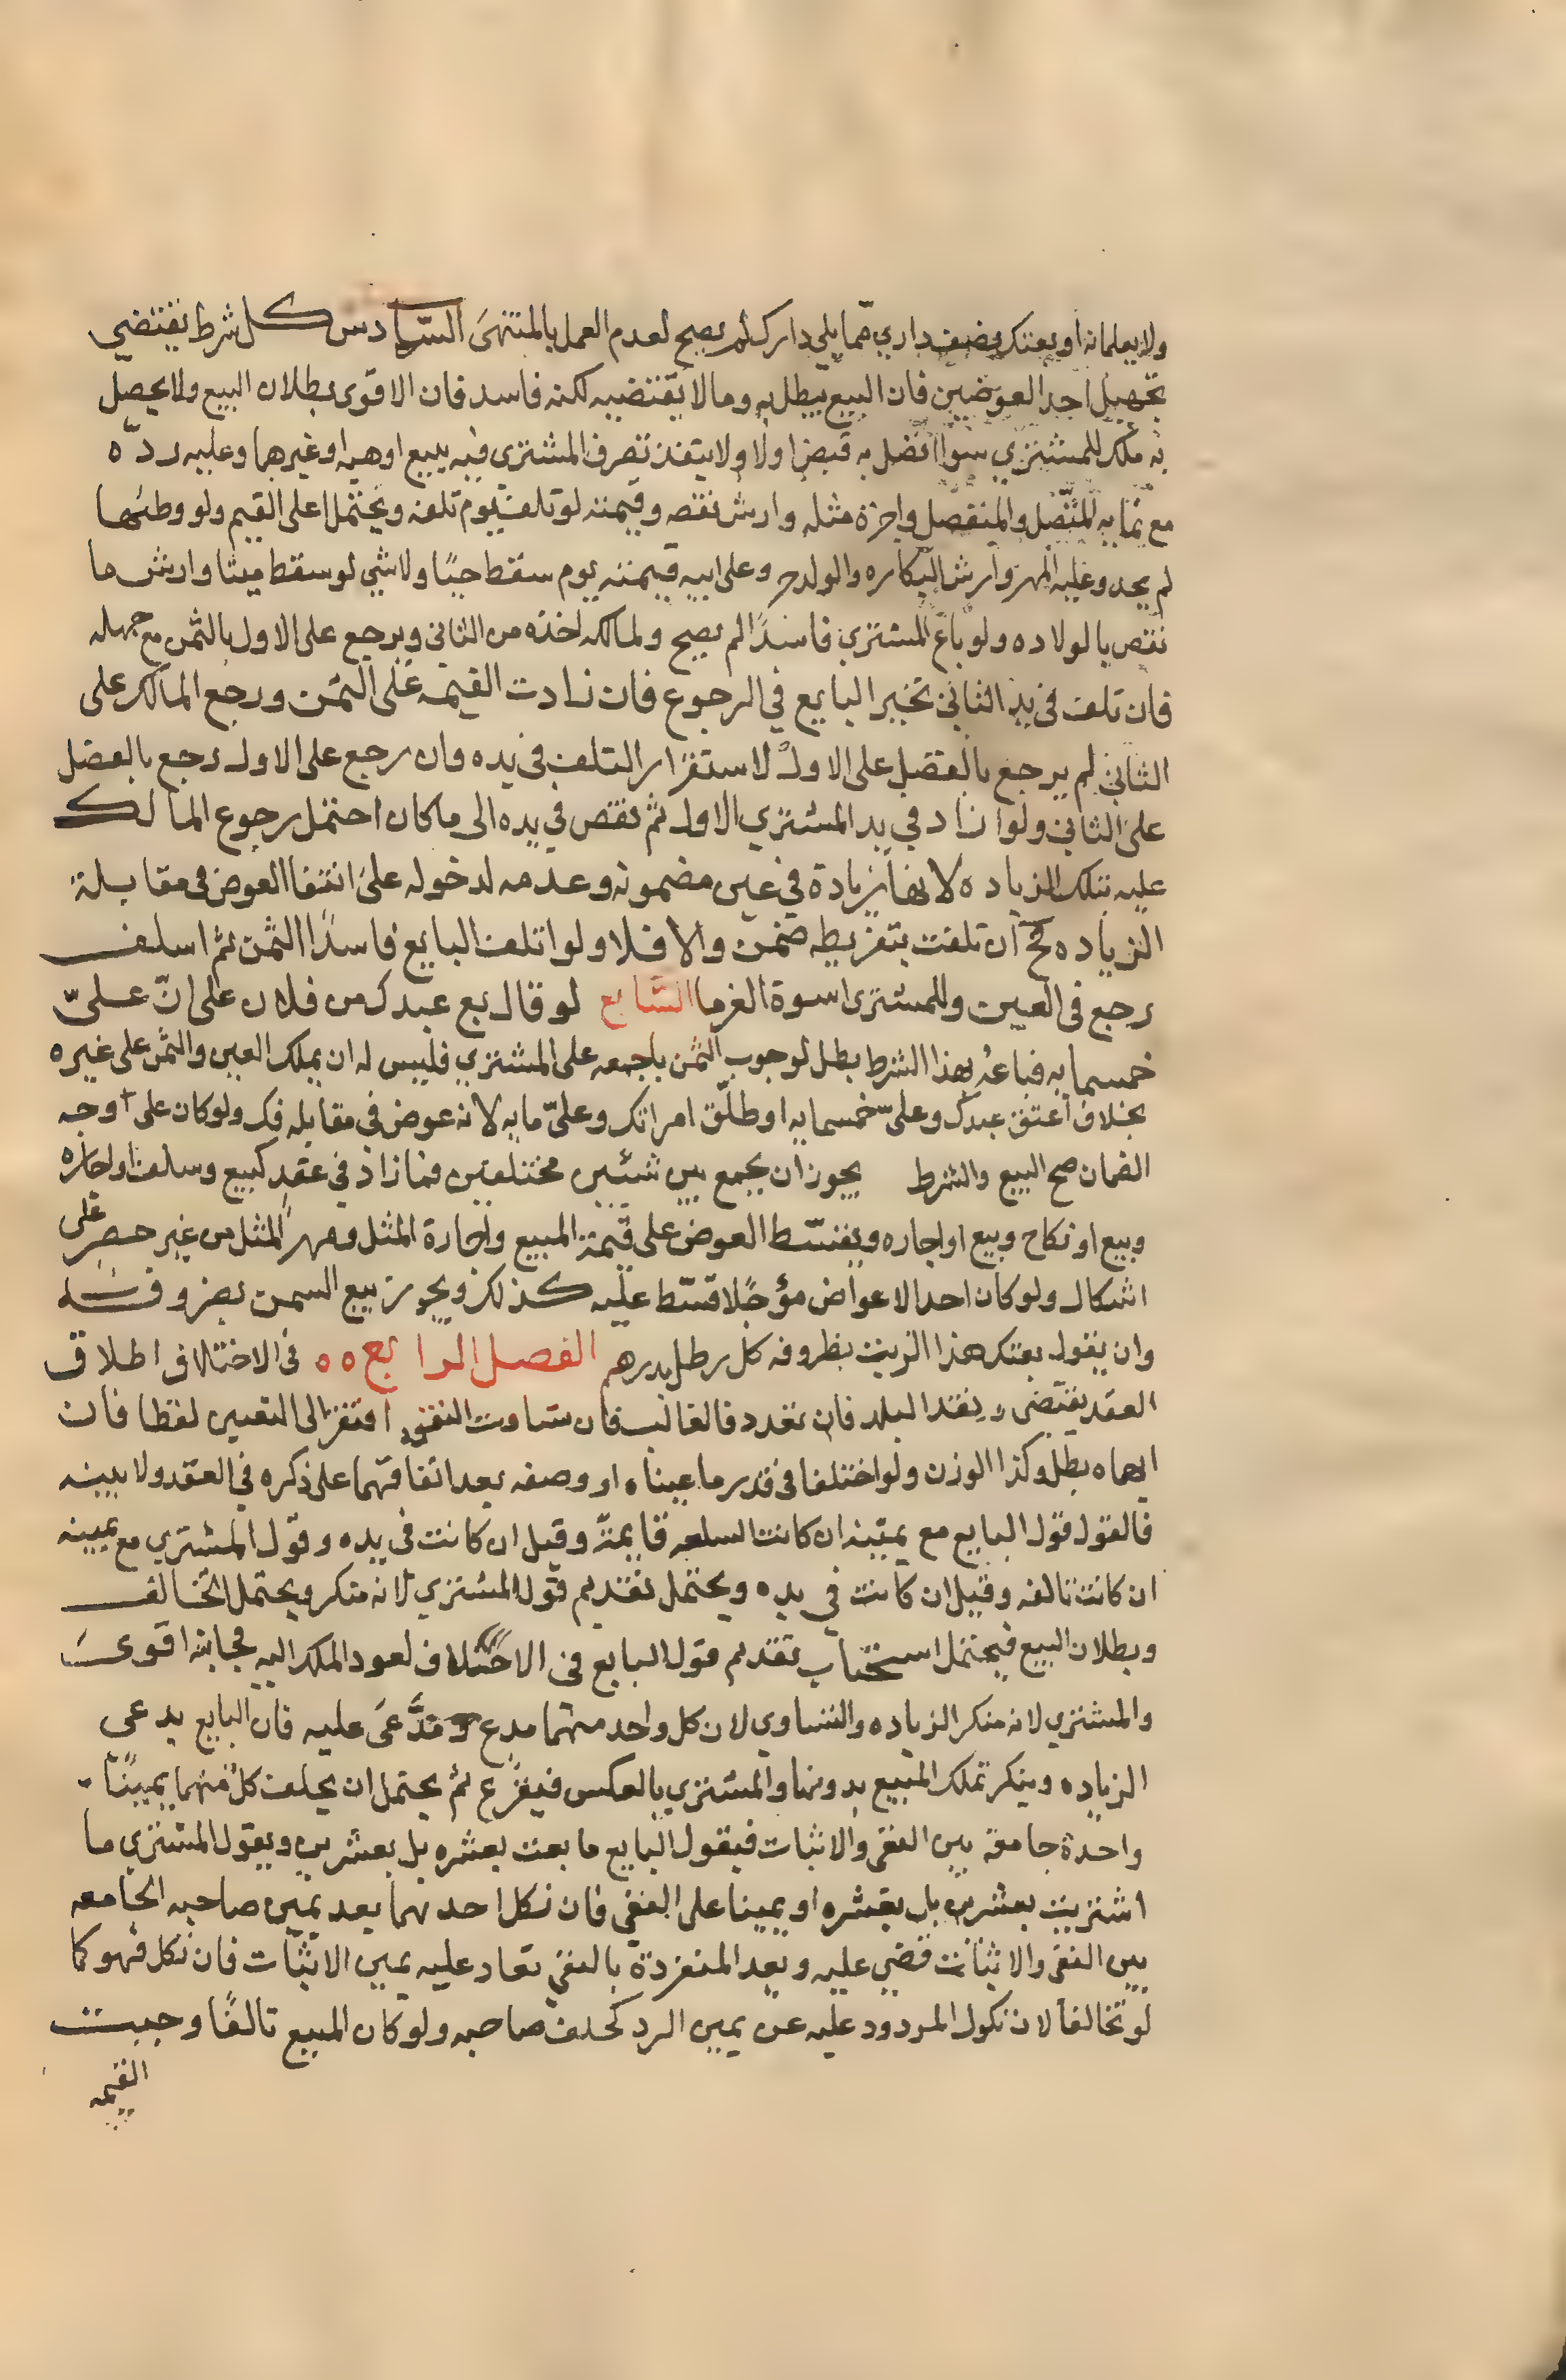 ولا يعلمانه او بعتك نصف داري مما يلي دارك لم يصح لعدم العمل بالمنتهى السّادس كل شرط يقتضي
تجهيل احد العوضين فان البيع يبطل به وما لا يقتضيه لكنه فاسد فان الاقوى بطلان البيع ولا يحصل
به ملك للمشتري سوا اتصل به قبض اولا ولا ينفذ تصرف المشتري فيه ببيع او هبه او غيرهما وعليه ردّه
مع نمايه المتّصل والمنفصل واجرة مثله وارش نقصه وقيمته لو تلف يوم تلفه ويحتمل اعلى القيم ولو وطئها
لم يحد وعليه المهر وارش البكاره والولد حر وعلى ابيه قيمته يوم سقط حيًا ولا شي لو سقط ميتا وارش ما
نقص بالولاده ولو باع المشتري فاسدًا لم يصح ولمالكه اخذه من الثاني ويرجع على الاول بالثمن مع جهله
فان تلف في يد الثاني تخير البايع في الرجوع فان زادت القيمه على الثمن ورجع المالك على
الثاني لم يرجع بالفضل على الاول لاستقرار التلف في يده وان رجع على الاول رجع بالفضل
على الثاني ولو زاد في يد المشتري الاول ثم نقص في يده الى ما كان احتمل رجوع المالك
عليه بتلك الزياده لانها زيادة في عين مضمونه وعدمه لدخوله على انتفا العوض في مقابلة
الزياده فح ان تلفت بتفريطه ضمن والا فلا ولو اتلف البايع فاسدًا الثمن ثم افلس
رجع في العين وللمشترى اسوة الغرما السّابع لو قال بع عبدك من فلان على انّ عليّ
خمسمايه فباعهُ بهذا الشرط بطل لوجوب الثمن باجمعه على المشتري فليس له ان يملك العين والثمن على غيره
بخلاف اعتق عبدك وعليّ خمسمايه او طلّق امراتك وعليّ مايه لانه عوض في مقابله فك ولو كان على وجه
الضمان صح البيع والشرط يجوز ان يجمع بين شئين مختلفين فما زاد في عقد كبيع وسلف او اجاره
وبيع او نكاح وبيع او اجاره ويقسّط العوض على قيمة المبيع واجارة المثل ومهر المثل من غير حصر على
اشكال ولو كان احد الاعواض مؤجّلا قسّط عليه كذلك ويجوز بيع السمن بظروفه
وان يقول بعتك هذا الزيت بظروفه كل رطل بدرهم الفصل الرابع في الاختلاف اطلاق
العقد يقتضى نقد البلد فان تعدد فالغالب فان تساوت النقود افتقر الى التعيين لفظا فان
ابهماه بطل وكذا الوزن ولو اختلفا في قدر ما عيناه او وصفه بعد اتفاقهما على ذكره في العقد ولا بينه
فالقول قول البايع مع يمينه ان كانت السلعه قايمةً وقيل ان كانت في يده وقول المشتري مع يمينه
ان كانت تالفه وقيل ان كانت في يده ويحتمل تقديم قول المشتري لانه منكر ويحتمل التحالف
وبطلان البيع فيحتمل استحباب تقديم قول البايع في الاختلاف لعود الملك اليه فجانبه اقوى
والمشتري لانه منكر الزياده والتساوي لان كل واحد منهما مدع ومدّعى عليه فان البايع يدعى
الزياده وينكر تملك المبيع بدونها والمشتري بالعكس فيقرع ثم يحتمل ان يحلف كلّ منهما يمينًا
واحدة جامعة بين النفي والاثبات فيقول البايع ما بعت بعشره بل بعشرين ويقول المشتري ما
اشتريت بعشرين بل بعشره او يمينا على النفي فان نكل احدهما بعد يمين صاحبه الجامعه
بين النفي والاثبات قضي عليه وبعد المنفردة بالنفي تعاد عليه يمين الاثبات فان نكل فهو كما
لو تحالفا لان نكول المردود عليه عن يمين الرد كحلف صاحبه ولو كان المبيع تالفًا وجبت
القيمه